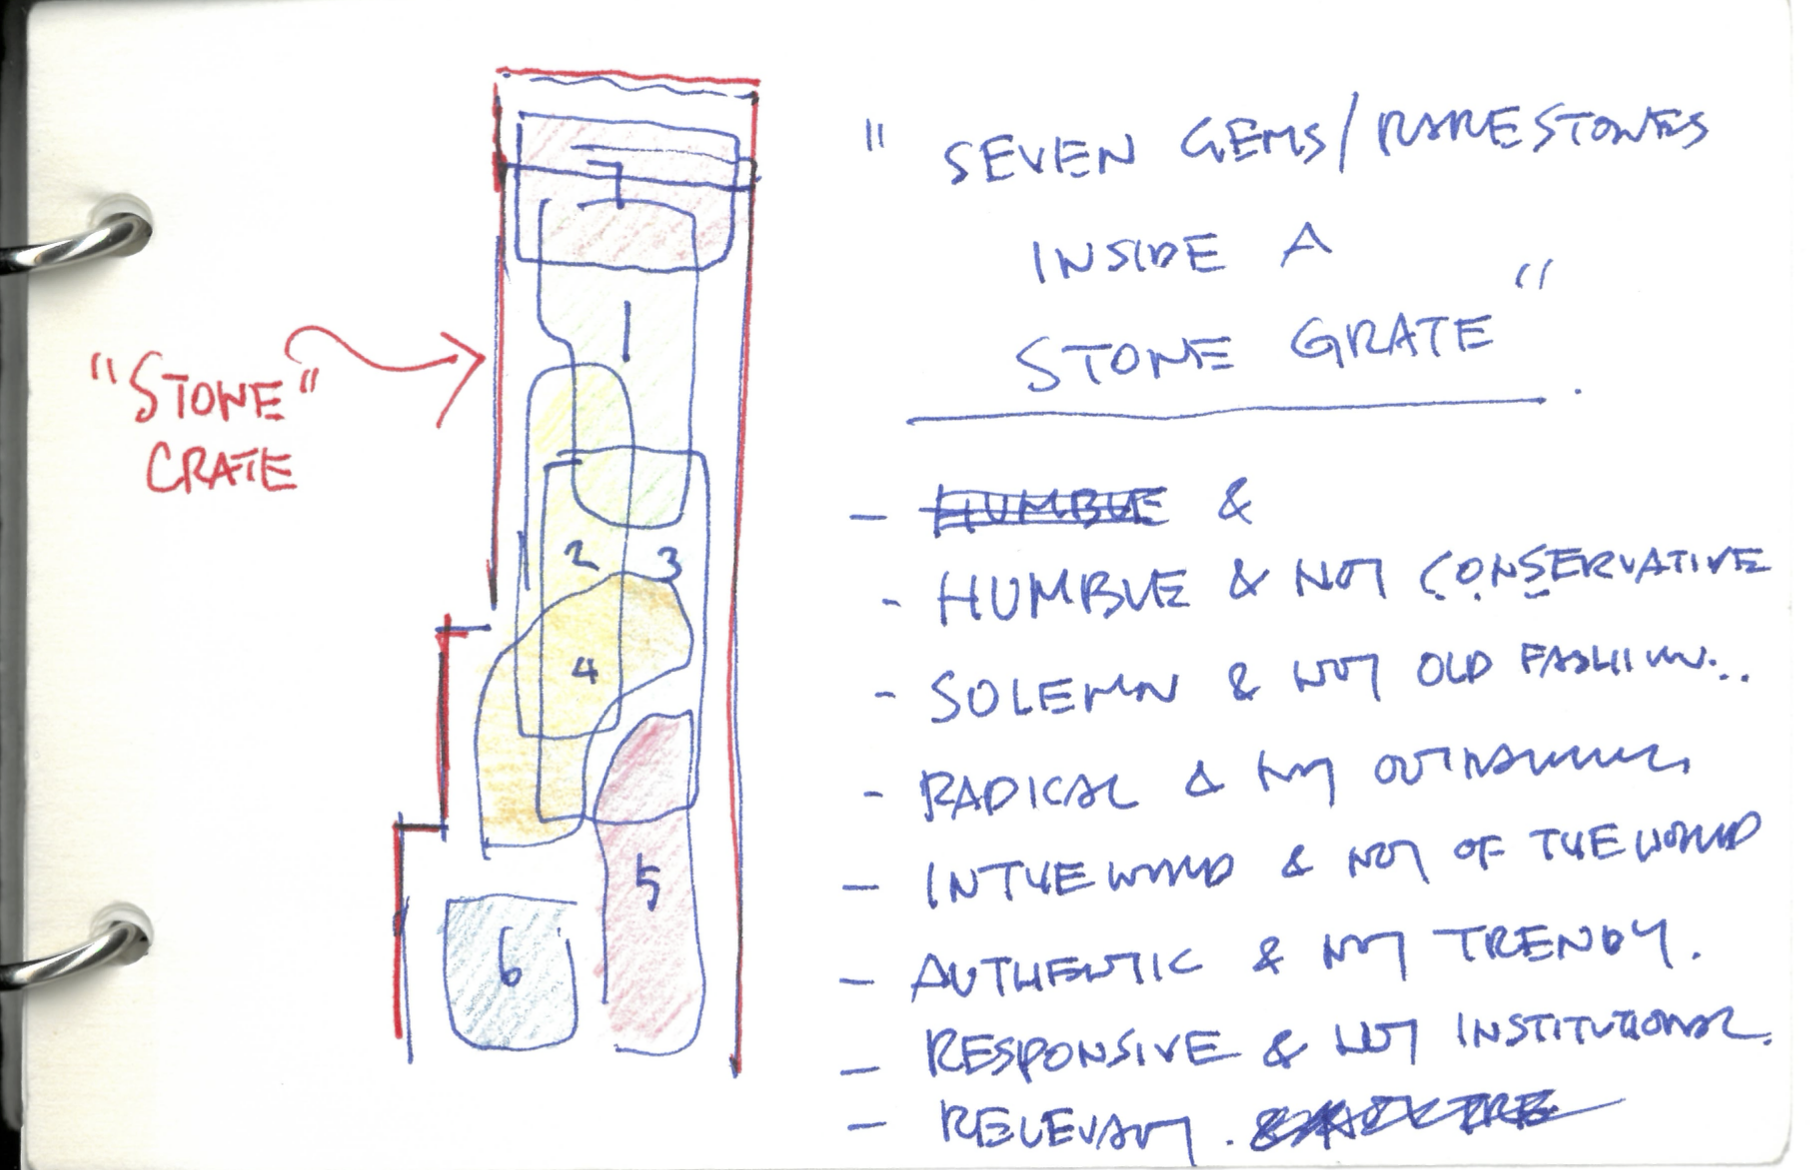 " SEVEN GEMS/RARE STONES
INSIDE A
STONE GRATE"
"STONE"
CRATE
7
1
2 3
4
5
6
- HUMBLE &
- HUMBLE & NOT CONSERVATIVE
- SOLEMN & NOT OLD FASHION..
- RADICAL & NOT
- IN THE WORLD & NOT OF THE WORLD
- AUTHENTIC & NOT TRENDY.
- RESPONSIVE & NOT INSTITUTIONAL.
- RELEVANT.